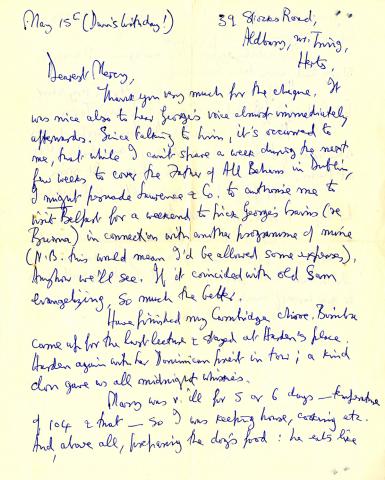 May 15th (Dawn's birthday!)
39 Stocks Road,
Aldbury, nr. Tring,
Herts.
Dearest Mercy,
Thank you very much for the cheque. It
was nice also to hear George's voice almost immediately
afterwards. Since talking to him, it's occurred to
me, that while I can't spare a week during the next
few weeks to cover the Father of All Behans in Dublin,
I might persuade Lawrence & Co. to authorise me to
visit Belfast for a weekend to pick George's brains (re
Burma) in connection with another programme of mine
(N.B. this would mean I'd be allowed some expenses).
Anyhow we'll see. If it coincided with old Sam
evangelizing, so much the better.
Have finished my Cambridge chore. Bimba
came up for the last lecture & stayed at Harden's place.
Harden again with her Dominican priest in tow; a kind
don gave us all midnight whiskies.
was v. ill for 5 or 6 days — temperature
of 104 & that — so I was keeping house, cooking etc.
And, above all, preparing the dog's food: he eats like